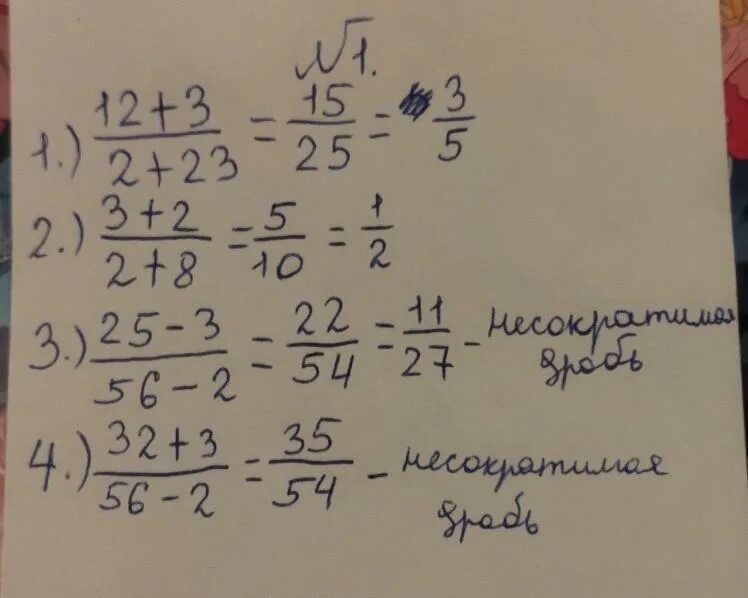 №1.
1.) (12+3)/(2+23) = 15/25 = 3/5
2.) (3+2)/(2+8) = 5/10 = 1/2
3.) (25-3)/(56-2) = 22/54 = 11/27 - несократимая
дробь
4.) (32+3)/(56-2) = 35/54 - несократимая
дробь